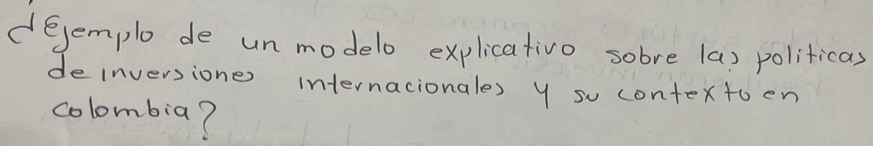 ¿Ejemplo de un modelo explicativo sobre las politicas
de inversiones internacionales y su contexto en
Colombia?